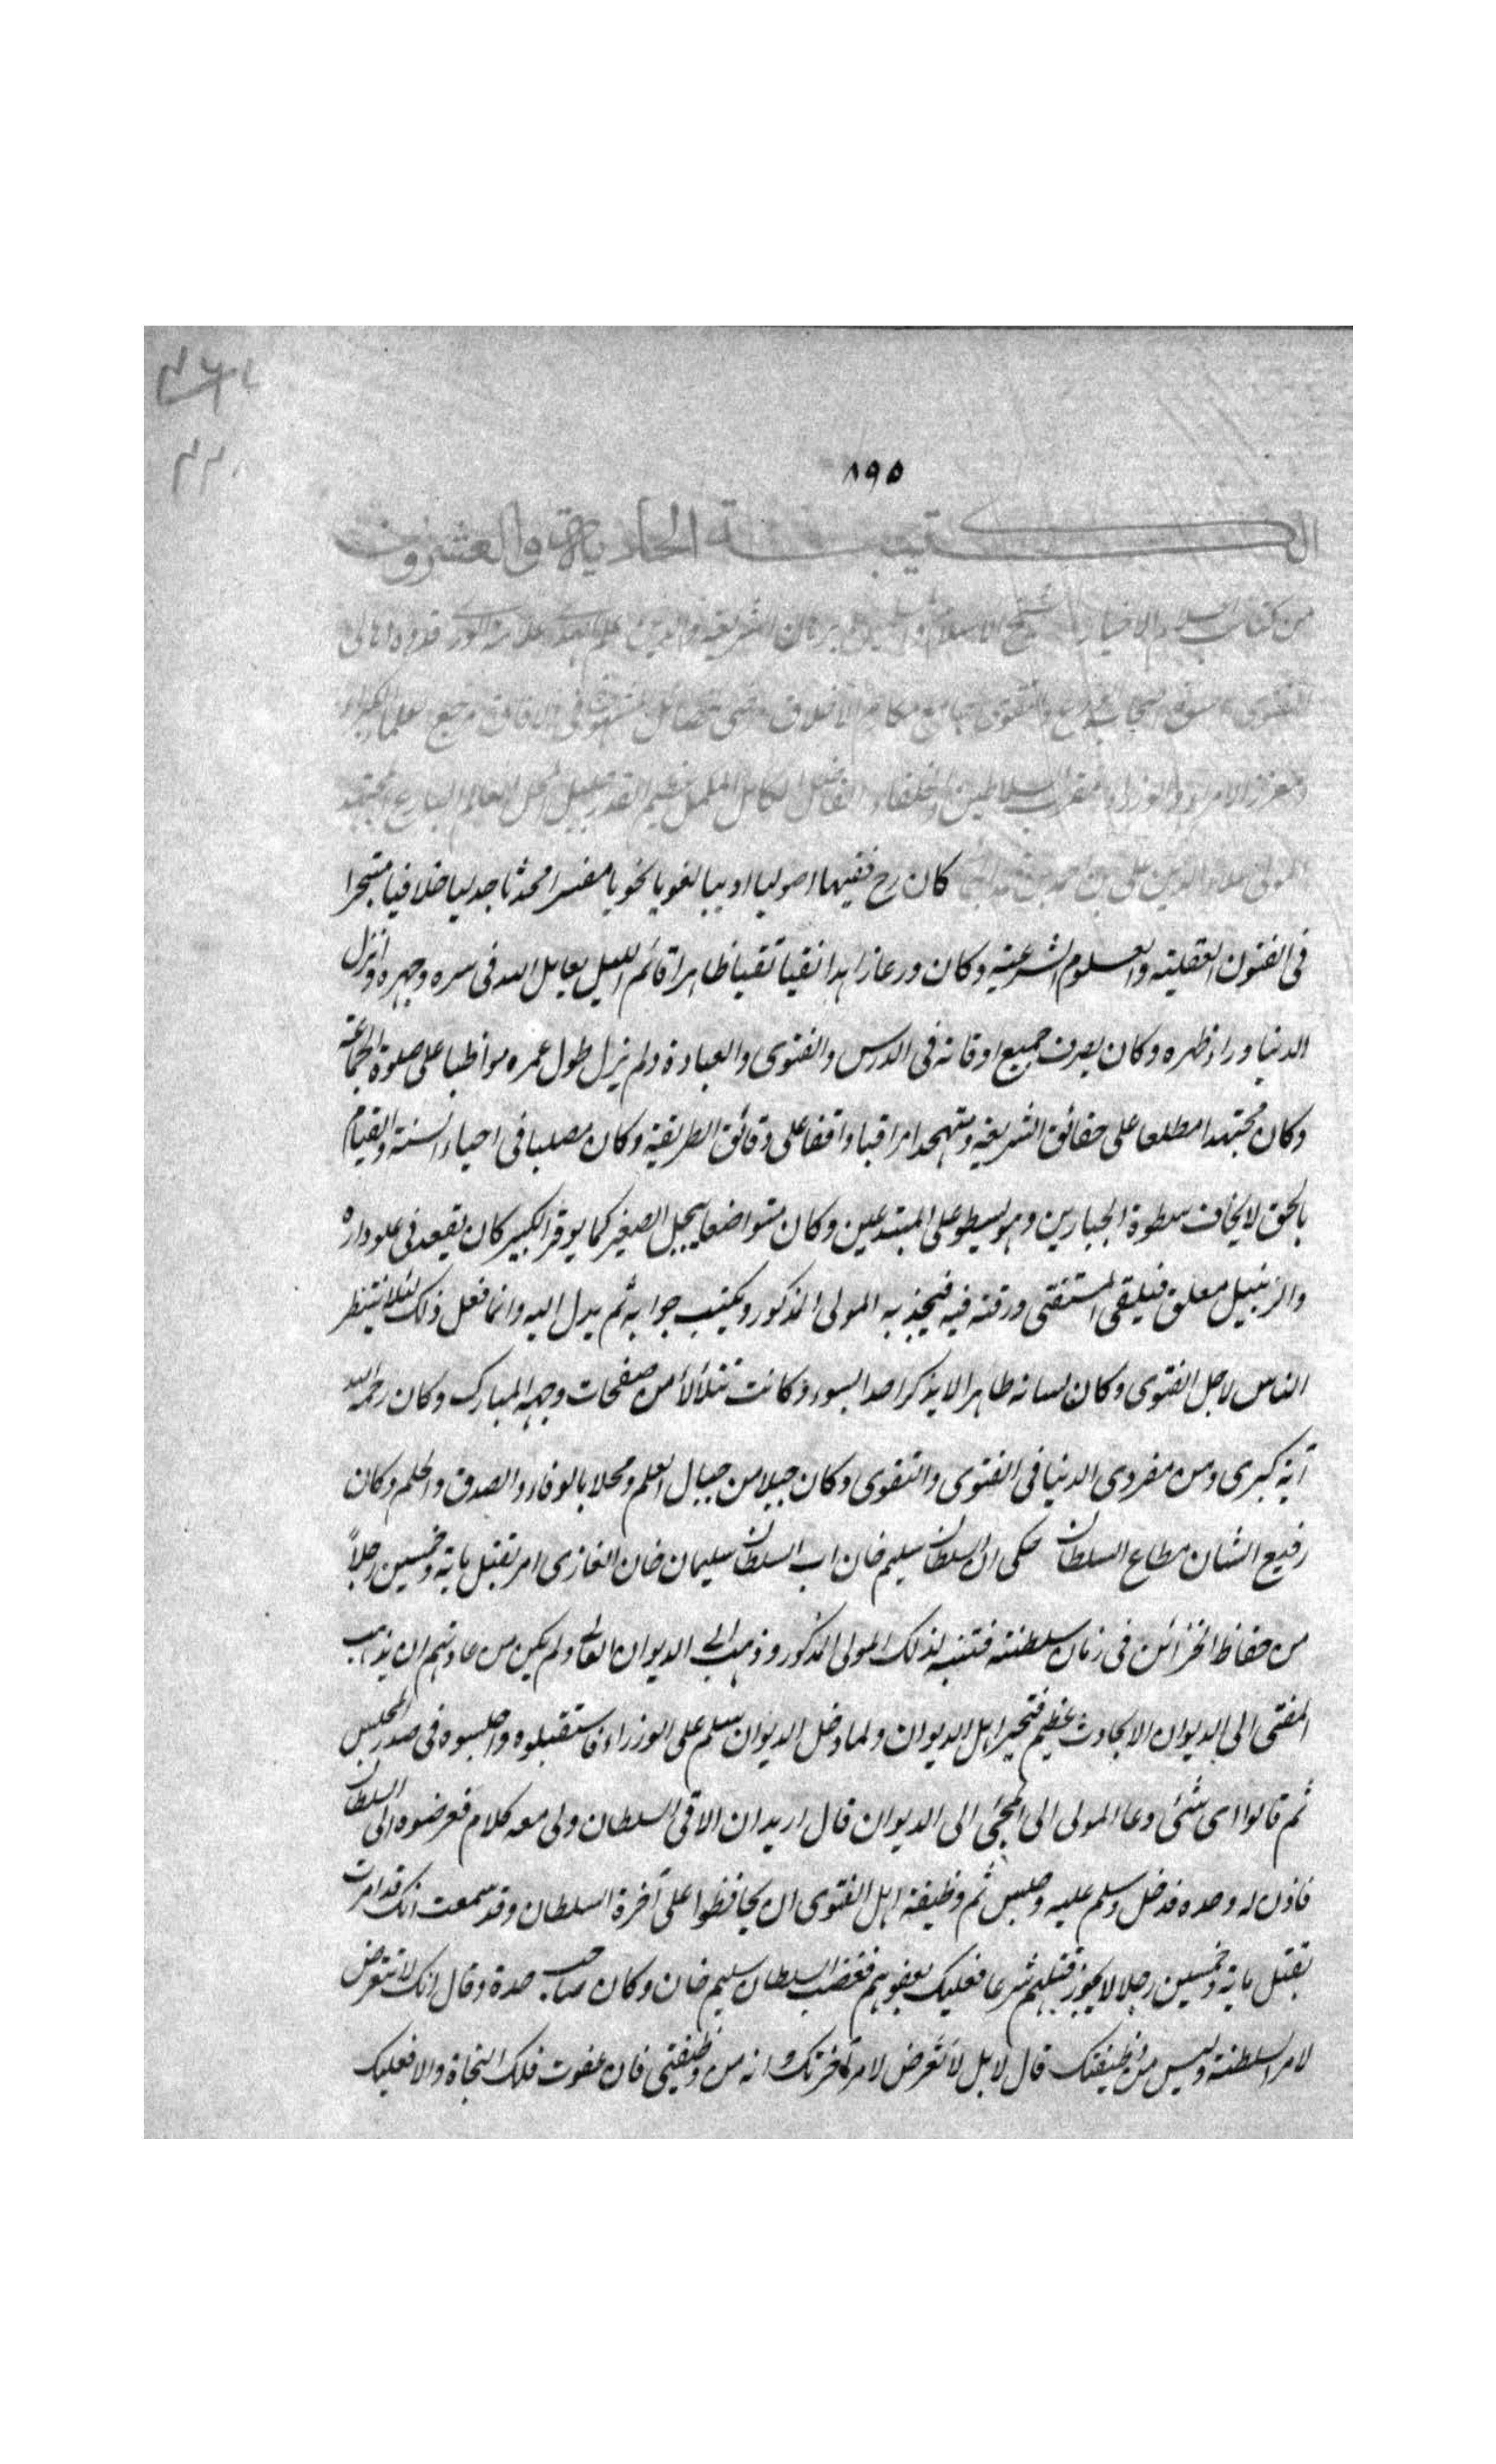 ٨٩٥
الكتيبة الحادية والعشرون
من كتائب اعلام الاخيار شيخ الاسلام برهان الشريعة والدين علم الهدى علامة الورى قدوة اهالى
الفتوى والتقوى جامع مكارم الاخلاق فى الافاق مرجع علماء
معزز الامراء والوزراء مقرب السلاطين والخلفاء الفاضل الكامل المكمل عظيم القدر جليل المحل العالم البارع المجتهد
المولى علاء الدين على بن احمد بن محمد الجمالى كان رح فقيها اصوليا اديبا لغويا نحويا مفسرا محدثا جدليا خلافيا متبحرا
فى الفنون العقلية والعلوم الشرعية وكان ورعا زاهدا نقيا تقيا ظاهرا قائم الليل يعامل الله فى سره وجهره وانزل
الدنيا وراء ظهره وكان يصرف جميع اوقاته فى الدرس والفتوى والعبادة ولم يزل طول عمره مواظبا على صلوة الجماعة
وكان مجتهدا مطلعا على حقائق الشريعة ومتهجدا مراقبا واقفا على دقائق الطريقة وكان مصلبا فى احياء السنة والقيام
بالحق لا يخاف سطوة الجبارين وهو يسطو على المبتدعين وكان متواضعا يبجل الصغير كما يوقر الكبير كان يقعد فى علو داره
والزنبيل معلق فيلقى المستفتى ورقته فيه فيجذبه المولى المذكور ويكتب جوابه ثم يدل اليه وانما فعل ذلك لئلا ينتظر
الناس لاجل الفتوى وكان لسانه طاهرا لا يذكر احدا بسوء وكانت تتلألأ من صفحات وجهه المبارك وكان رحمه الله
آية كبرى ومن مفردى الدنيا فى الفتوى والتقوى وكان جبلا من جبال العلم ومحلا بالوفاء والصدق والحلم وكان
رفيع الشان مطاع السلطان حكى ان السلطان سليم خان اب السلطان سليمان خان الغازى امر بقتل ماية وخمسين رجلاً
من حفاظ الخزائن فى زمان سلطنته فتنبه لذلك المولى المذكور وذهب الى الديوان العالى ولم يكن من عادتهم ان يذهب
المفتى الى الديوان الا لحادث عظيم فتحير اهل الديوان ولما دخل الديوان سلم على الوزراء فاستقبلوه واجلسوه فى صدر المجلس
ثم قالوا اى شئ دعا المولى الى المجئ الى الديوان قال اريد ان الاقى السلطان ولى معه كلام فعرضوه الى السلطان
فاذن له وحده فدخل وسلم عليه وجلس ثم وظيفة اهل الفتوى ان يحافظوا على آخرة السلطان وقد سمعت انك قد امرت
بقتل ماية وخمسين رجلا لا يجوز قتلهم شرعا فعليك بعفوهم فغضب السلطان سليم خان وكان صاحب حدة وقال انك لا تتعرض
لامر السلطنة وليس من وظيفتك قال لا بل لا تعرض لامر آخرتك وانه من وظيفتى فان عفوت فلك النجاة والا فعليك